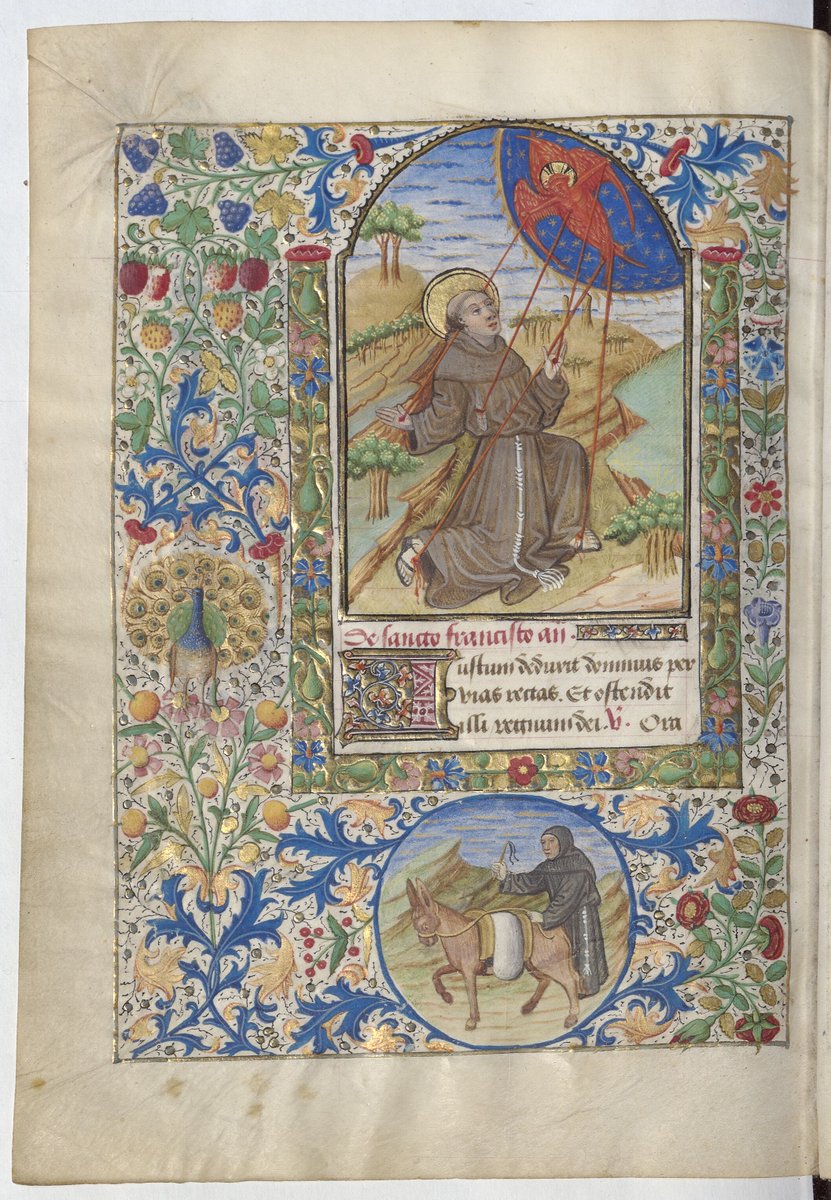 De sancto francisco an.
Iustum deduxit dominus per
vias rectas. Et ostendit
illi regnum dei. V. Ora